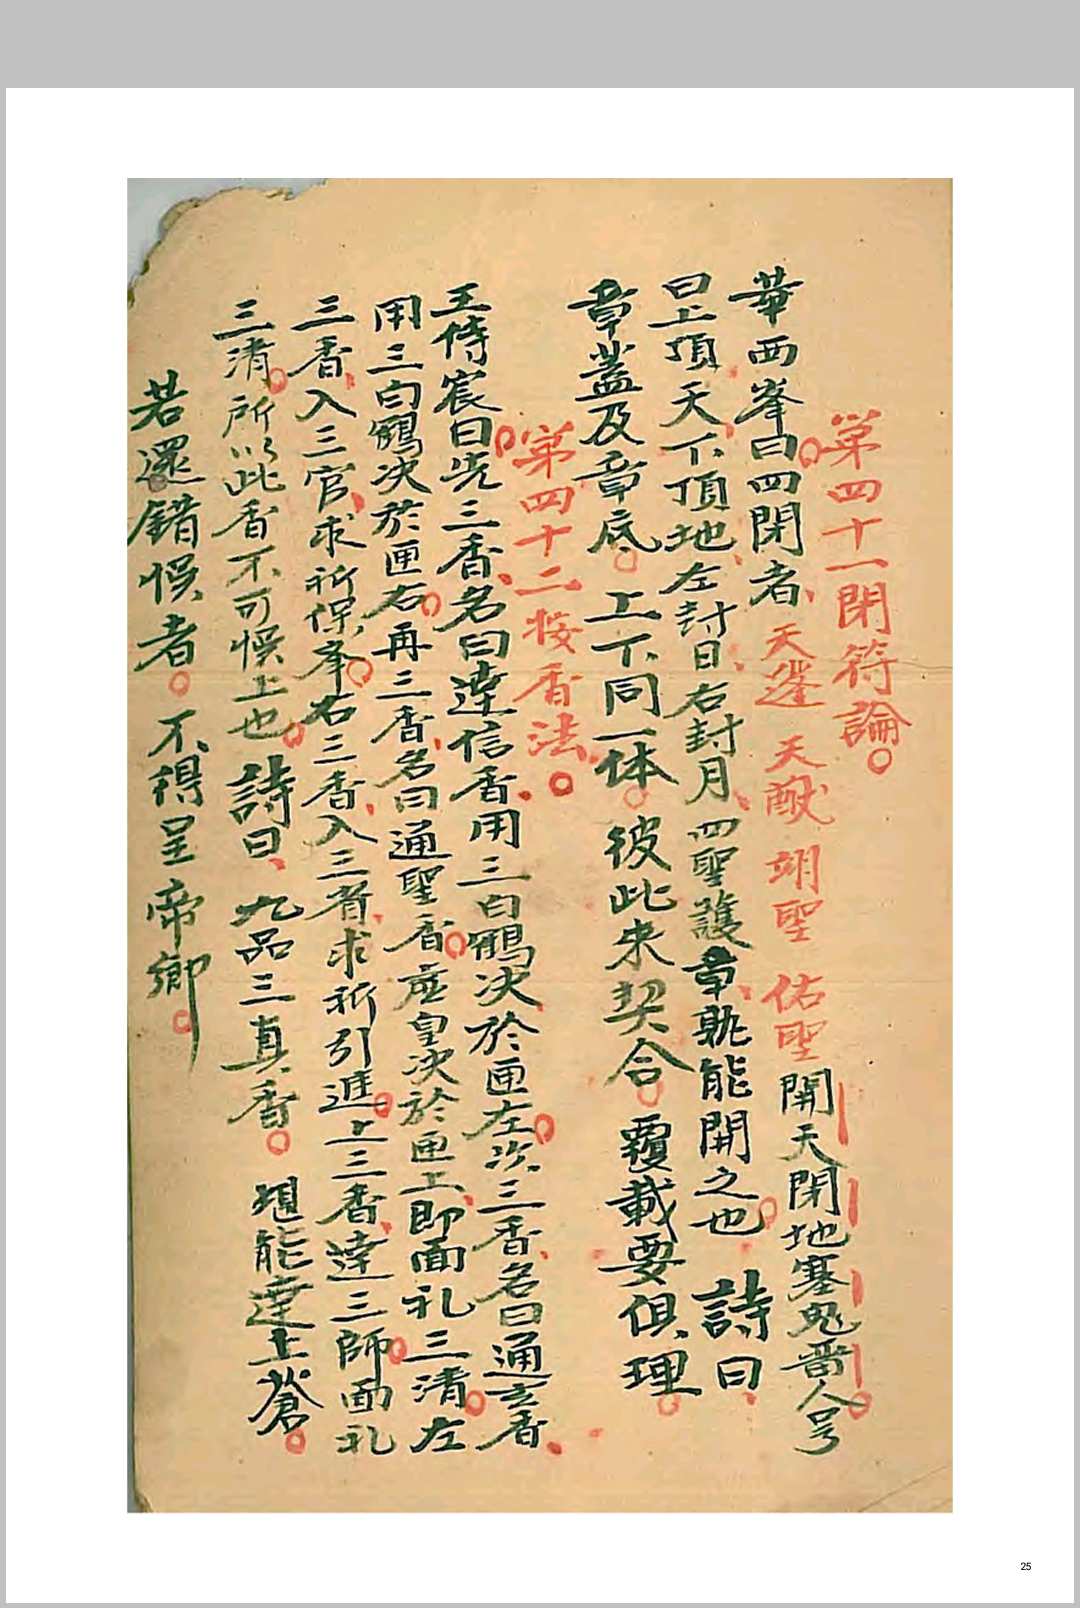 第四十一閉符論
華西峯曰四閉者天蓬天猷翊聖佑聖開天閉地塞鬼啬人号
曰上頂天下頂地左封日右封月四聖護章孰能開之也詩曰
章蓋及章底上下同一体彼此来契合覆載要俱理
第四十二按香法
王侍宸曰先三香名曰達信香用三白鶴决於匣左次三香名曰通玄香
用三白鶴决於匣右再三香名曰通聖香虚皇决於匣上即面礼三清左
三香入三官求祈保奉右三香入三省求祈引進上三香達三師面礼
三清所以此香不可悞上也詩曰九品三真香堪能達上蒼
若還錯悞者不得呈帝鄉
25